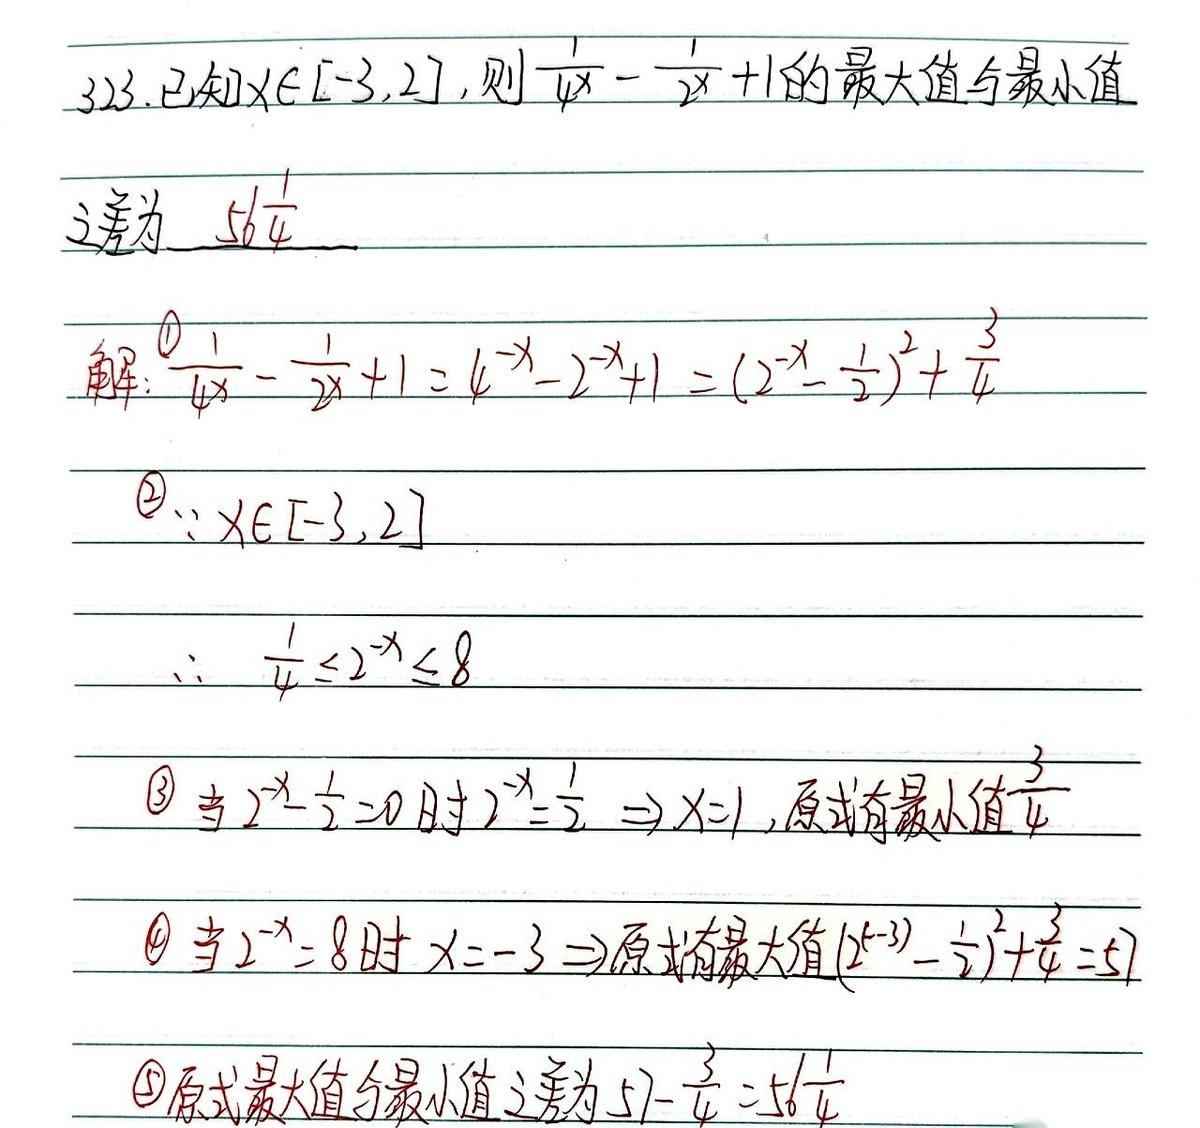 323.已知x∈[-3,2],则 1/4^x - 1/2^x +1的最大值与最小值
之差为 56 1/4
解:① 1/4^x - 1/2^x +1 = 4^-x - 2^-x +1 = (2^-x - 1/2)^2 + 3/4
②∵x∈[-3,2]
∴ 1/4 ≤ 2^-x ≤ 8
③ 当2^-x - 1/2 =0时2^-x = 1/2 ⇒ x=1,原式有最小值 3/4
④ 当2^-x = 8时 x=-3 ⇒原式有最大值(2^(-3) - 1/2)^2 + 3/4 =57
⑤原式最大值与最小值之差为57- 3/4 =56 1/4